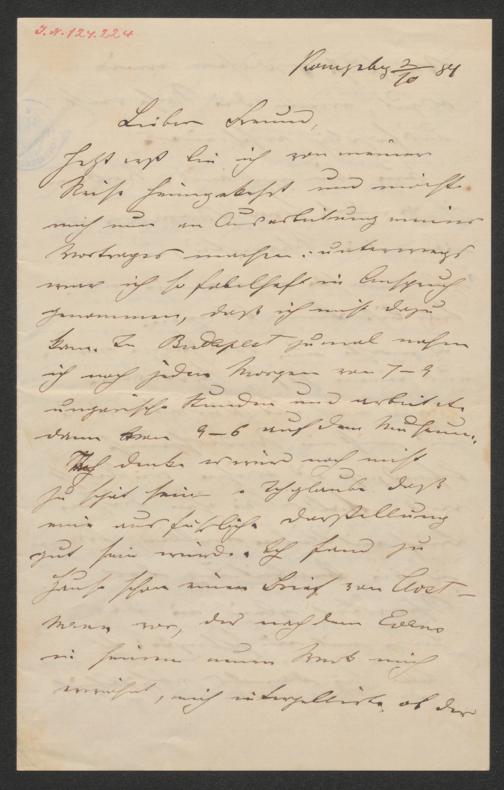 J.N. 124.224
Königsbg 2/10 84
Lieber Freund,
Jetzt erst bin ich von meiner
Reise heimgekehrt und möchte
mich nun an Ausarbeitung meines
Vortrages machen: unterwegs
war ich so fabelhaft in Anspruch
genommen, daß ich nicht dazu
kam. In Budapest zumal nahm
ich noch jeden Morgen von 7–9
ungarische Stunden und arbeitete
dann von 9–6 auf dem Museum.
Ich denke es wird noch nicht
zu spät sein. Ich glaube daß
eine ausführliche Darstellung
gut sein würde. Ich fand zu
Hause schon einen Brief von
vor, der nach dem
in seinem neuen Werk mich
, mich, ob der